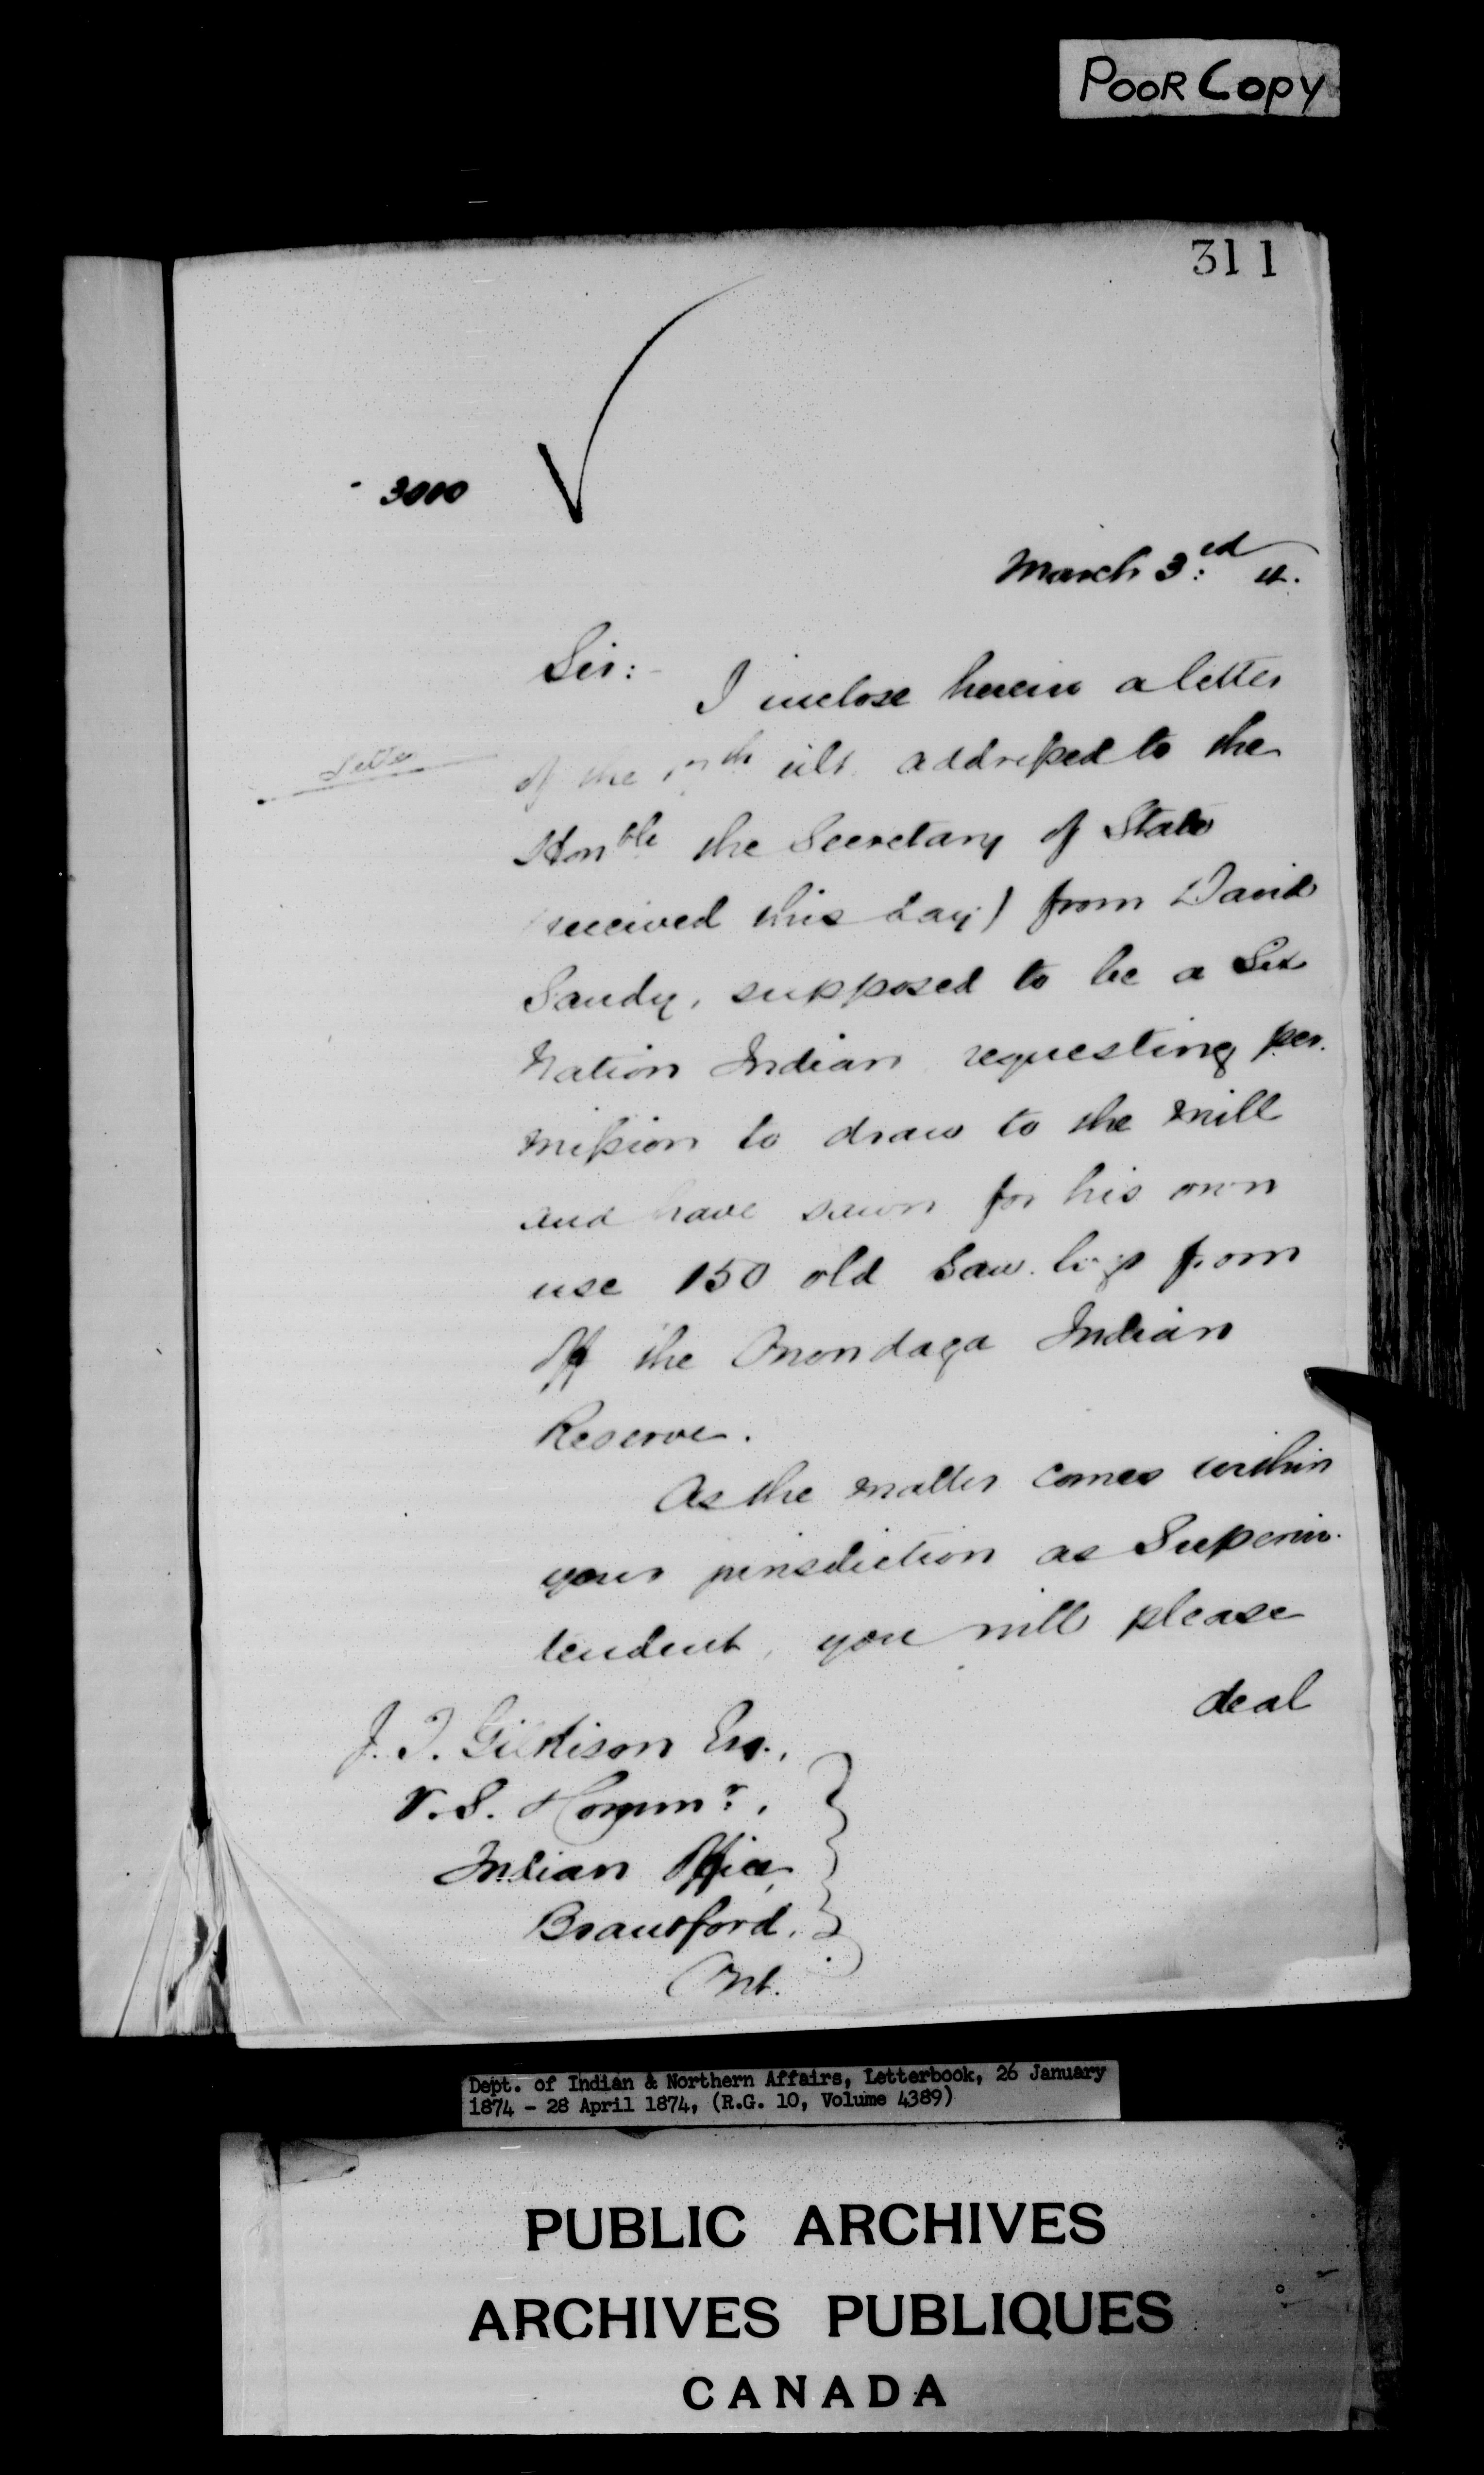 POOR COPY
311
3000
March 3rd 4.
Sir:-
I inclose herein a letter
of the 17th ult. addressed to the
Honble the Secretary of State
(received this day) from David
Sandy, supposed to be a Six
Nation Indian requesting per-
mission to draw to the mill
and have sawn for his own
use 150 old Saw. logs from
Off the Onondaga Indian
Reserve.
As the matter comes within
your jurisdiction as Superin-
tendent, you will please
deal
J. T. Gilkison Esq.,
V. S. Commr.,
Indian Office,
Brantford.
Ont.
Dept. of Indian & Northern Affairs, Letterbook, 26 January
1874 - 28 April 1874, (R.G. 10, Volume 4389)
PUBLIC ARCHIVES
ARCHIVES PUBLIQUES
CANADA